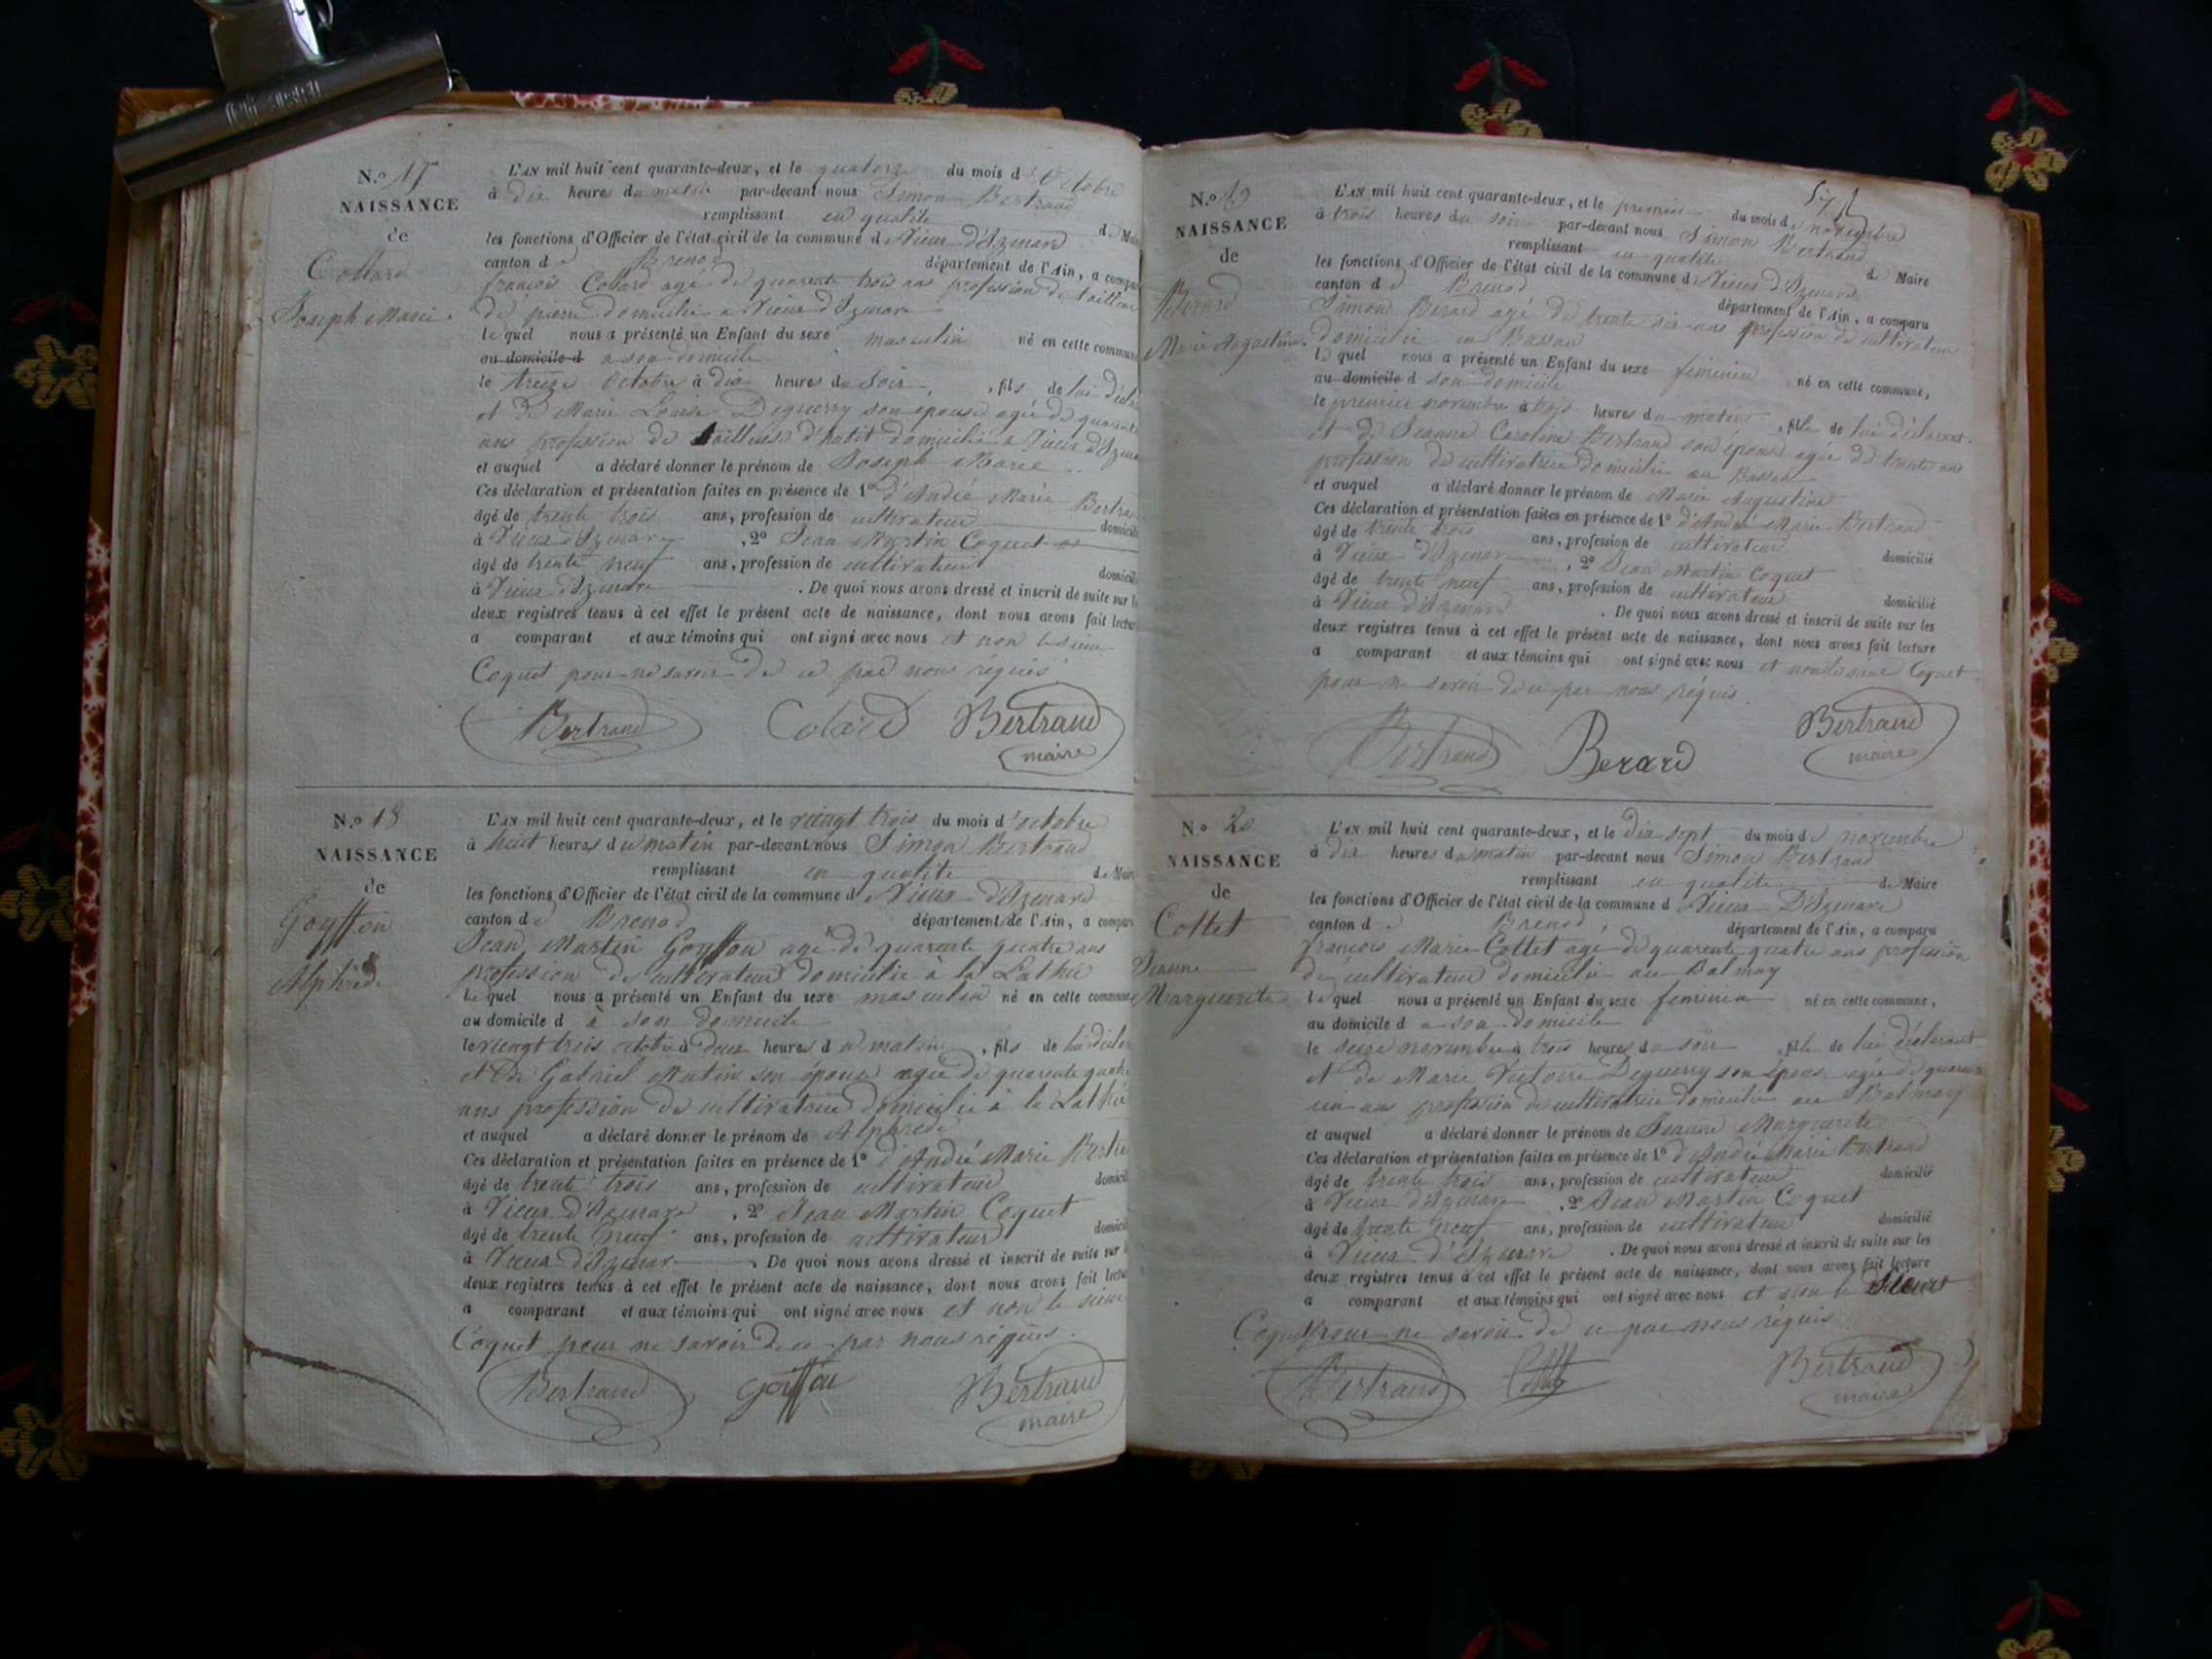 N.o 17
NAISSANCE
de
Collard
Joseph Marie
L'AN mil huit cent quarante-deux, et le quatorze du mois d'Octobre
à dix heure du matin par-devant nous Simon Bertrand
remplissant en qualité de Mai
les fonctions d'Officier de l'état civil de la commune de Vieux d'Izenave
canton de Brenod département de l'Ain, a compa
françois Collard agé de quarente trois ans profession de tailleur
de pierre domicilié a Vieux d'Izenave
lequel nous a présenté un Enfant du sexe masculin né en cette commune
au domicile d a son domicile
le treize Octobre à dix heures du Soir, fils de lui décla
et de Marie Louise Deguerry son épouse agée de quarente
ans profession de tailleuse d'habit domicilié a Vieux d'Izena
et auquel a déclaré donner le prénom de Joseph Marie
Ces déclaration et présentation faites en présence de 1o d'André Marie Bertran
âgé de trente trois ans, profession de cultivateur domicilié
à Vieux d'Izenave, 2o Jean Martin Coquet
âgé de trente neuf ans, profession de cultivateur domicili
à Vieux d'Izenave. De quoi nous avons dressé et inscrit de suite sur l
deux registres tenus à cet effet le présent acte de naissance, dont nous avons fait lectu
a comparant et aux témoins qui ont signé avec nous et non le sieur
Coquet pour ne savoir de ce par nous réquis
Bertrand Colard Bertrand
maire
N.o 18
NAISSANCE
de
Goyffon
Alphrede
L'AN mil huit cent quarante-deux, et le vingt trois du mois d'octobre
à huit heures du matin par-devant nous Simon Bertrand
remplissant en qualité de Mair
les fonctions d'Officier de l'état civil de la commune de Vieux d'Izenave
canton de Brenod département de l'Ain, a compar
Jean Martin Goyffon agé de quarente quatre ans
profession de cultivateur domicilié à la Lathie
lequel nous a présenté un Enfant du sexe masculin né en cette commune
au domicile d à son domicile
le vingt trois octobre à deux heures du matin, fils de lui décla
et de Gabriel Mutin son épouse agée de quarente quatre
ans profession de cultivatrice domicilié à la Lathie
et auquel a déclaré donner le prénom de Alphrede
Ces déclaration et présentation faites en présence de 1o d'André Marie Bertra
âgé de trente trois ans, profession de cultivateur domicil
à Vieux d'Izenave, 2o Jean Martin Coquet
âgé de trente neuf ans, profession de cultivateur domici
à Vieux d'Izenave. De quoi nous avons dressé et inscrit de suite sur l
deux registres tenus à cet effet le présent acte de naissance, dont nous avons fait lectu
a comparant et aux témoins qui ont signé avec nous et non le sieur
Coquet pour ne savoir de ce par nous réquis.
Bertrand goiffon Bertrand
maire
N.o
NAISSANCE
de
Berard
Marie Augustine
L'AN mil huit cent quarante-deux, et le premier du mois de novembre
à trois heures du soir par-devant nous Simon Bertrand
remplissant en qualité de Maire
les fonctions d'Officier de l'état civil de la commune de Vieux d'Izenave
canton de Brenod département de l'Ain, a comparu
Simon Berard agé de trente six ans profession de cultivateur
domicilié au Bassan
lequel nous a présenté un Enfant du sexe feminin né en cette commune,
au domicile d son domicile
le premier novembre à trois heures du matin, fille de lui déclarant
et de Jeanne Caroline Bertrand son épouse agée de trente ans
profession de cultivatrice domicilié au Bassan
et auquel a déclaré donner le prénom de Marie Augustine
Ces déclaration et présentation faites en présence de 1o d'André Marie Bertrand
âgé de trente trois ans, profession de cultivateur domicilié
à Vieux d'Izenave, 2o Jean Martin Coquet
âgé de trente neuf ans, profession de cultivateur domicilié
à Vieux d'Izenave. De quoi nous avons dressé et inscrit de suite sur les
deux registres tenus à cet effet le présent acte de naissance, dont nous avons fait lecture
a comparant et aux témoins qui ont signé avec nous et non le sieur Coquet
pour ne savoir de ce par nous réquis
Bertrand Berard Bertrand
maire
N.o 20
NAISSANCE
de
Cottet
Jeanne
Marguerite
L'AN mil huit cent quarante-deux, et le dix sept du mois de novembre
à dix heures du matin par-devant nous Simon Bertrand
remplissant en qualité de Maire
les fonctions d'Officier de l'état civil de la commune d Vieux D'Izenave
canton de Brenod département de l'Ain, a comparu
françois Marie Cottet agé de quarente quatre ans profession
de cultivateur domicilié au Balmay
lequel nous a présenté un Enfant du sexe feminin né en cette commune,
au domicile d a son domicile
le seize novembre à trois heures du soir, fille de lui déclarant
et de Marie Victoire Deguerry son épouse agée de quarente
un ans profession de cultivatrice domicilié au Balmay
et auquel a déclaré donner le prénom de Jeanne Marguerite
Ces déclaration et présentation faites en présence de 1o d'André Marie Bertrand
âgé de trente trois ans, profession de cultivateur domicilié
à Vieux d'Izenave, 2o Jean Martin Coquet
âgé de trente neuf ans, profession de cultivateur domicilié
à Vieux d'Izenave. De quoi nous avons dressé et inscrit de suite sur les
deux registres tenus à cet effet le présent acte de naissance, dont nous avons fait lecture
a comparant et aux témoins qui ont signé avec nous et non le Sieur
Coquet pour ne savoir de ce par nous réquis
Bertrand Cottet Bertrand
maire